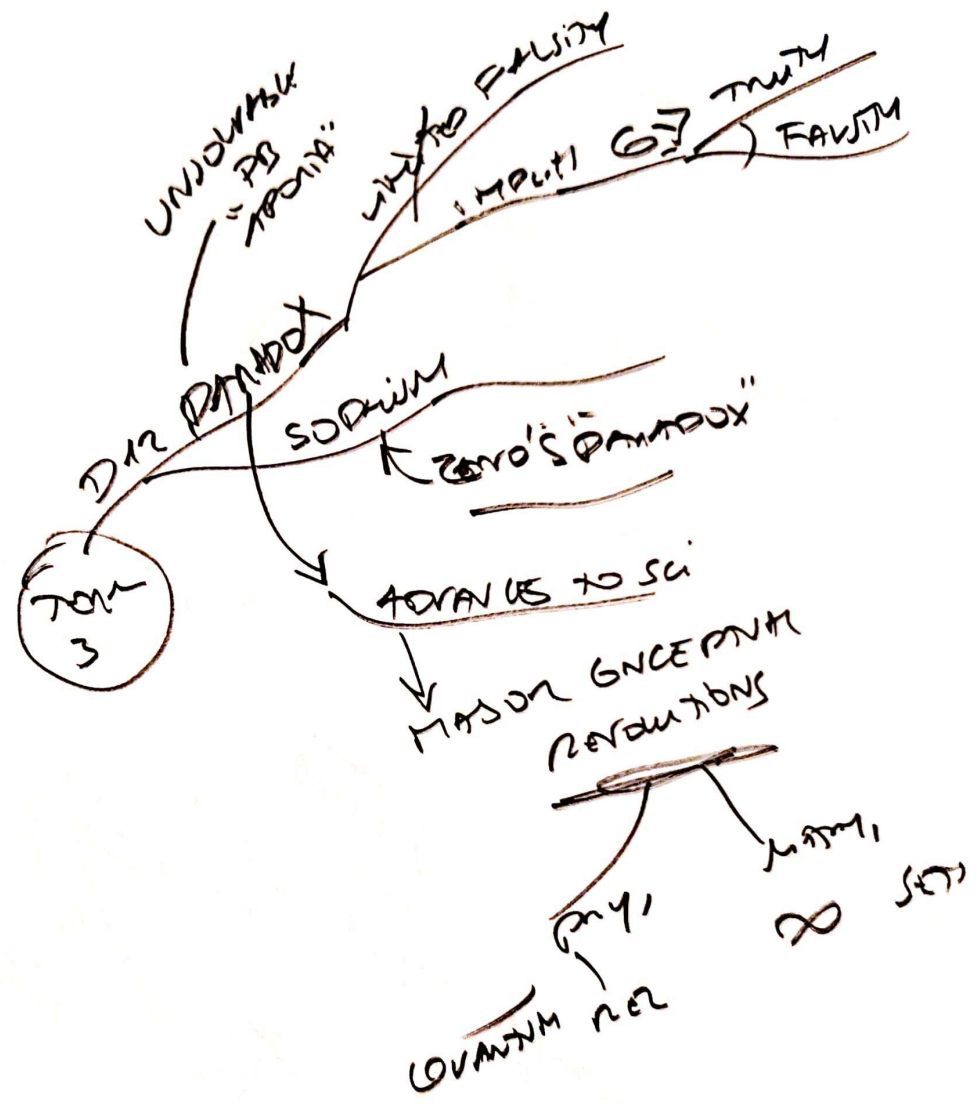 UNSOLVABLE
PB
"APORIA"
LIMITED FALSITY
IMPLITI
TRUTH
FALSITY
PARADOX
SOPHISM
ZENO'S "PARADOX"
TOPIC
3
ADVANCES TO SCI
MAJOR CONCEPTUAL
REVOLUTIONS
PHY,
MATH,
∞ SETS
QUANTUM REL